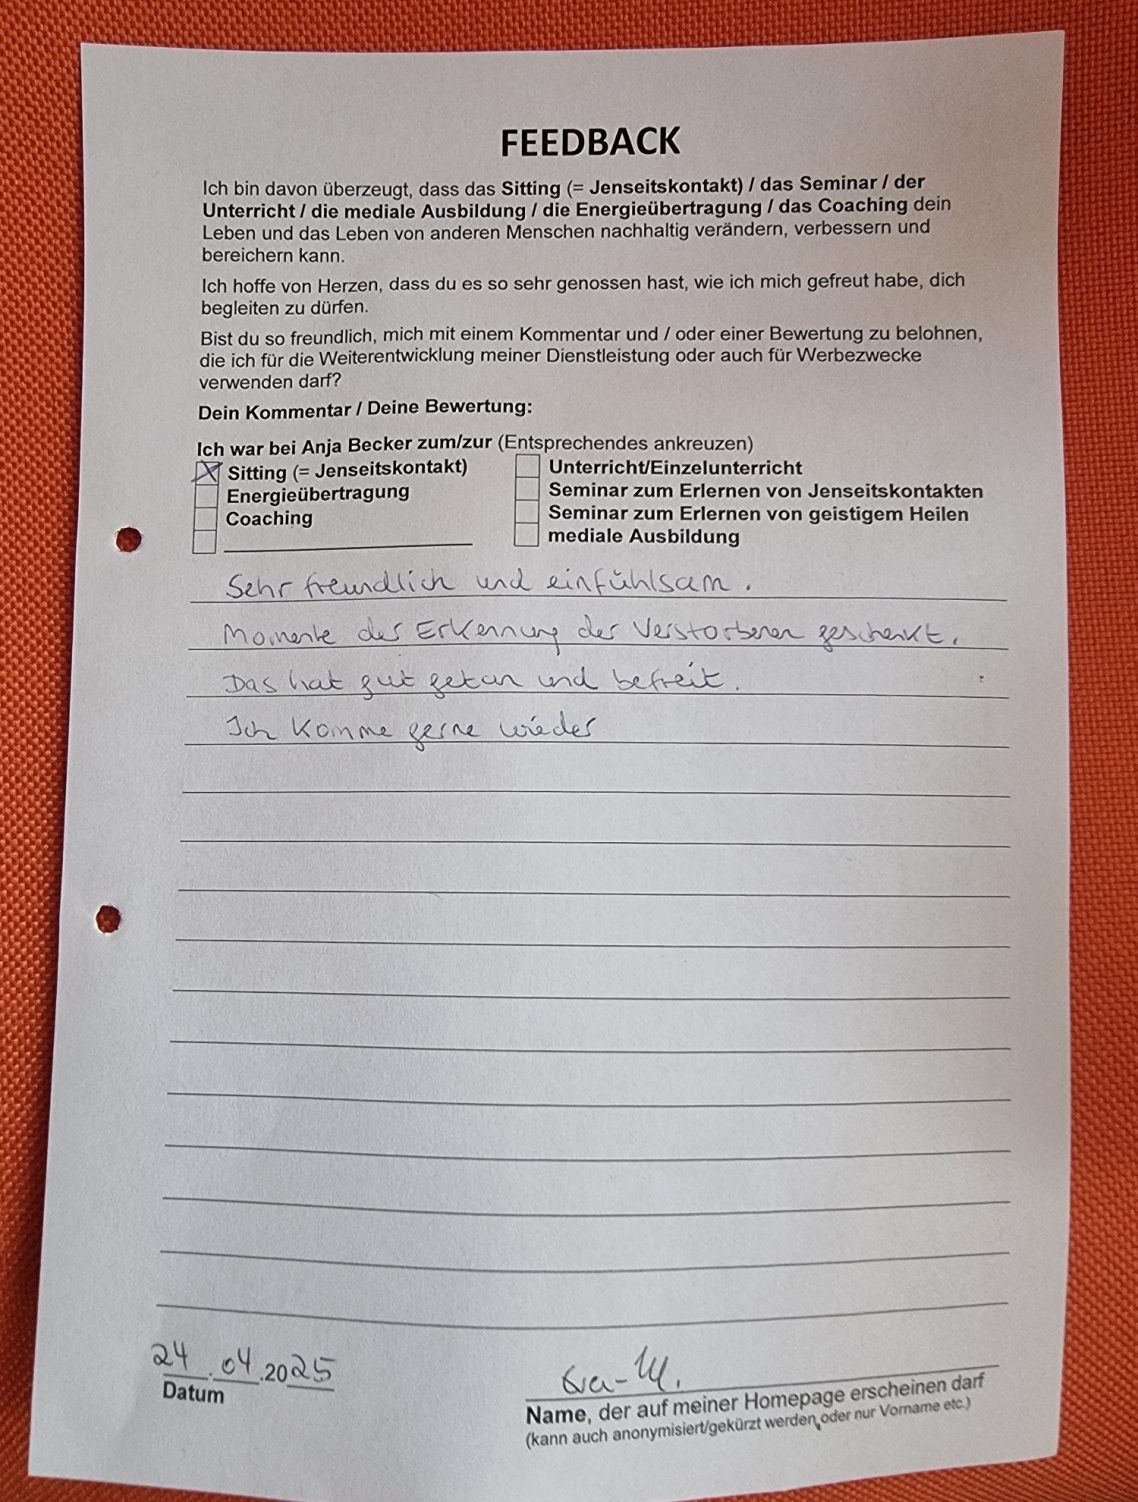 FEEDBACK
Ich bin davon überzeugt, dass das Sitting (= Jenseitskontakt) / das Seminar / der
Unterricht / die mediale Ausbildung / die Energieübertragung / das Coaching dein
Leben und das Leben von anderen Menschen nachhaltig verändern, verbessern und
bereichern kann.
Ich hoffe von Herzen, dass du es so sehr genossen hast, wie ich mich gefreut habe, dich
begleiten zu dürfen.
Bist du so freundlich, mich mit einem Kommentar und / oder einer Bewertung zu belohnen,
die ich für die Weiterentwicklung meiner Dienstleistung oder auch für Werbezwecke
verwenden darf?
Dein Kommentar / Deine Bewertung:
Ich war bei Anja Becker zum/zur (Entsprechendes ankreuzen)
X Sitting (= Jenseitskontakt)
Energieübertragung
Coaching
Unterricht/Einzelunterricht
Seminar zum Erlernen von Jenseitskontakten
Seminar zum Erlernen von geistigem Heilen
mediale Ausbildung
Sehr freundlich und einfühlsam.
Momente der Erkennung der Verstorbenen geschenkt.
Das hat gut getan und befreit.
Ich komme gerne wieder
24.04.2025
Datum
Eva-M.
Name, der auf meiner Homepage erscheinen darf
(kann auch anonymisiert/gekürzt werden, oder nur Vorname etc.)